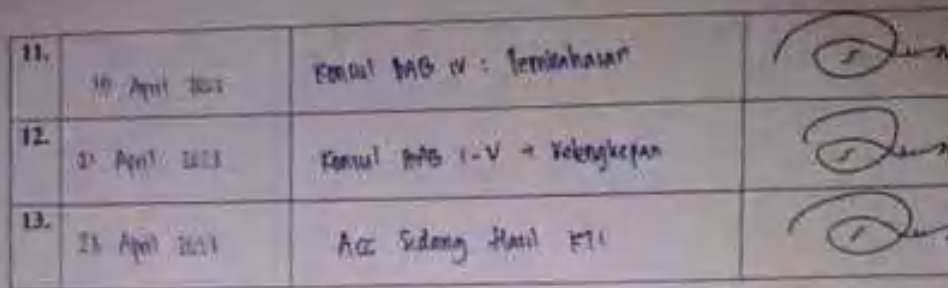 11. April Konsul BAB IV : Pembahasan
12. April Konsul BAB I-V + Kelengkapan
13. April Acc Sidang Hasil KTI